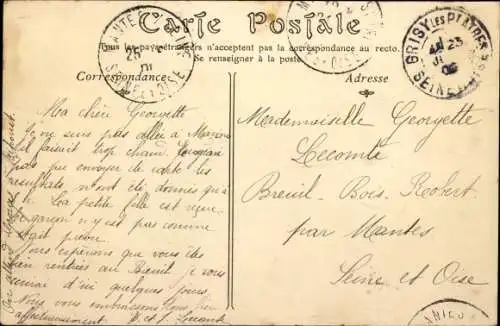 Carte Postale
Tous les pays étrangers n'acceptent pas la correspondance au recto.
Se renseigner à la poste
Correspondance
Adresse
GRISY LES PLATRES
SEINE ET OISE
Ma chère Georgette
Je ne suis pas allée à
il faisait trop chaud.
pas pu envoyer de carte les
résultats n'ont été donnés qu'à
La petite fille est reçue
garçon n'y est pas comme
était prévu.
Nous espérons que vous êtes
bien rentrées au Breuil je vous
d'ici quelques jours.
Nous vous embrassons tous bien
affectueusement
Mademoiselle Georgette
Lecomte
Breuil-Bois-Robert
par Mantes
Seine et Oise